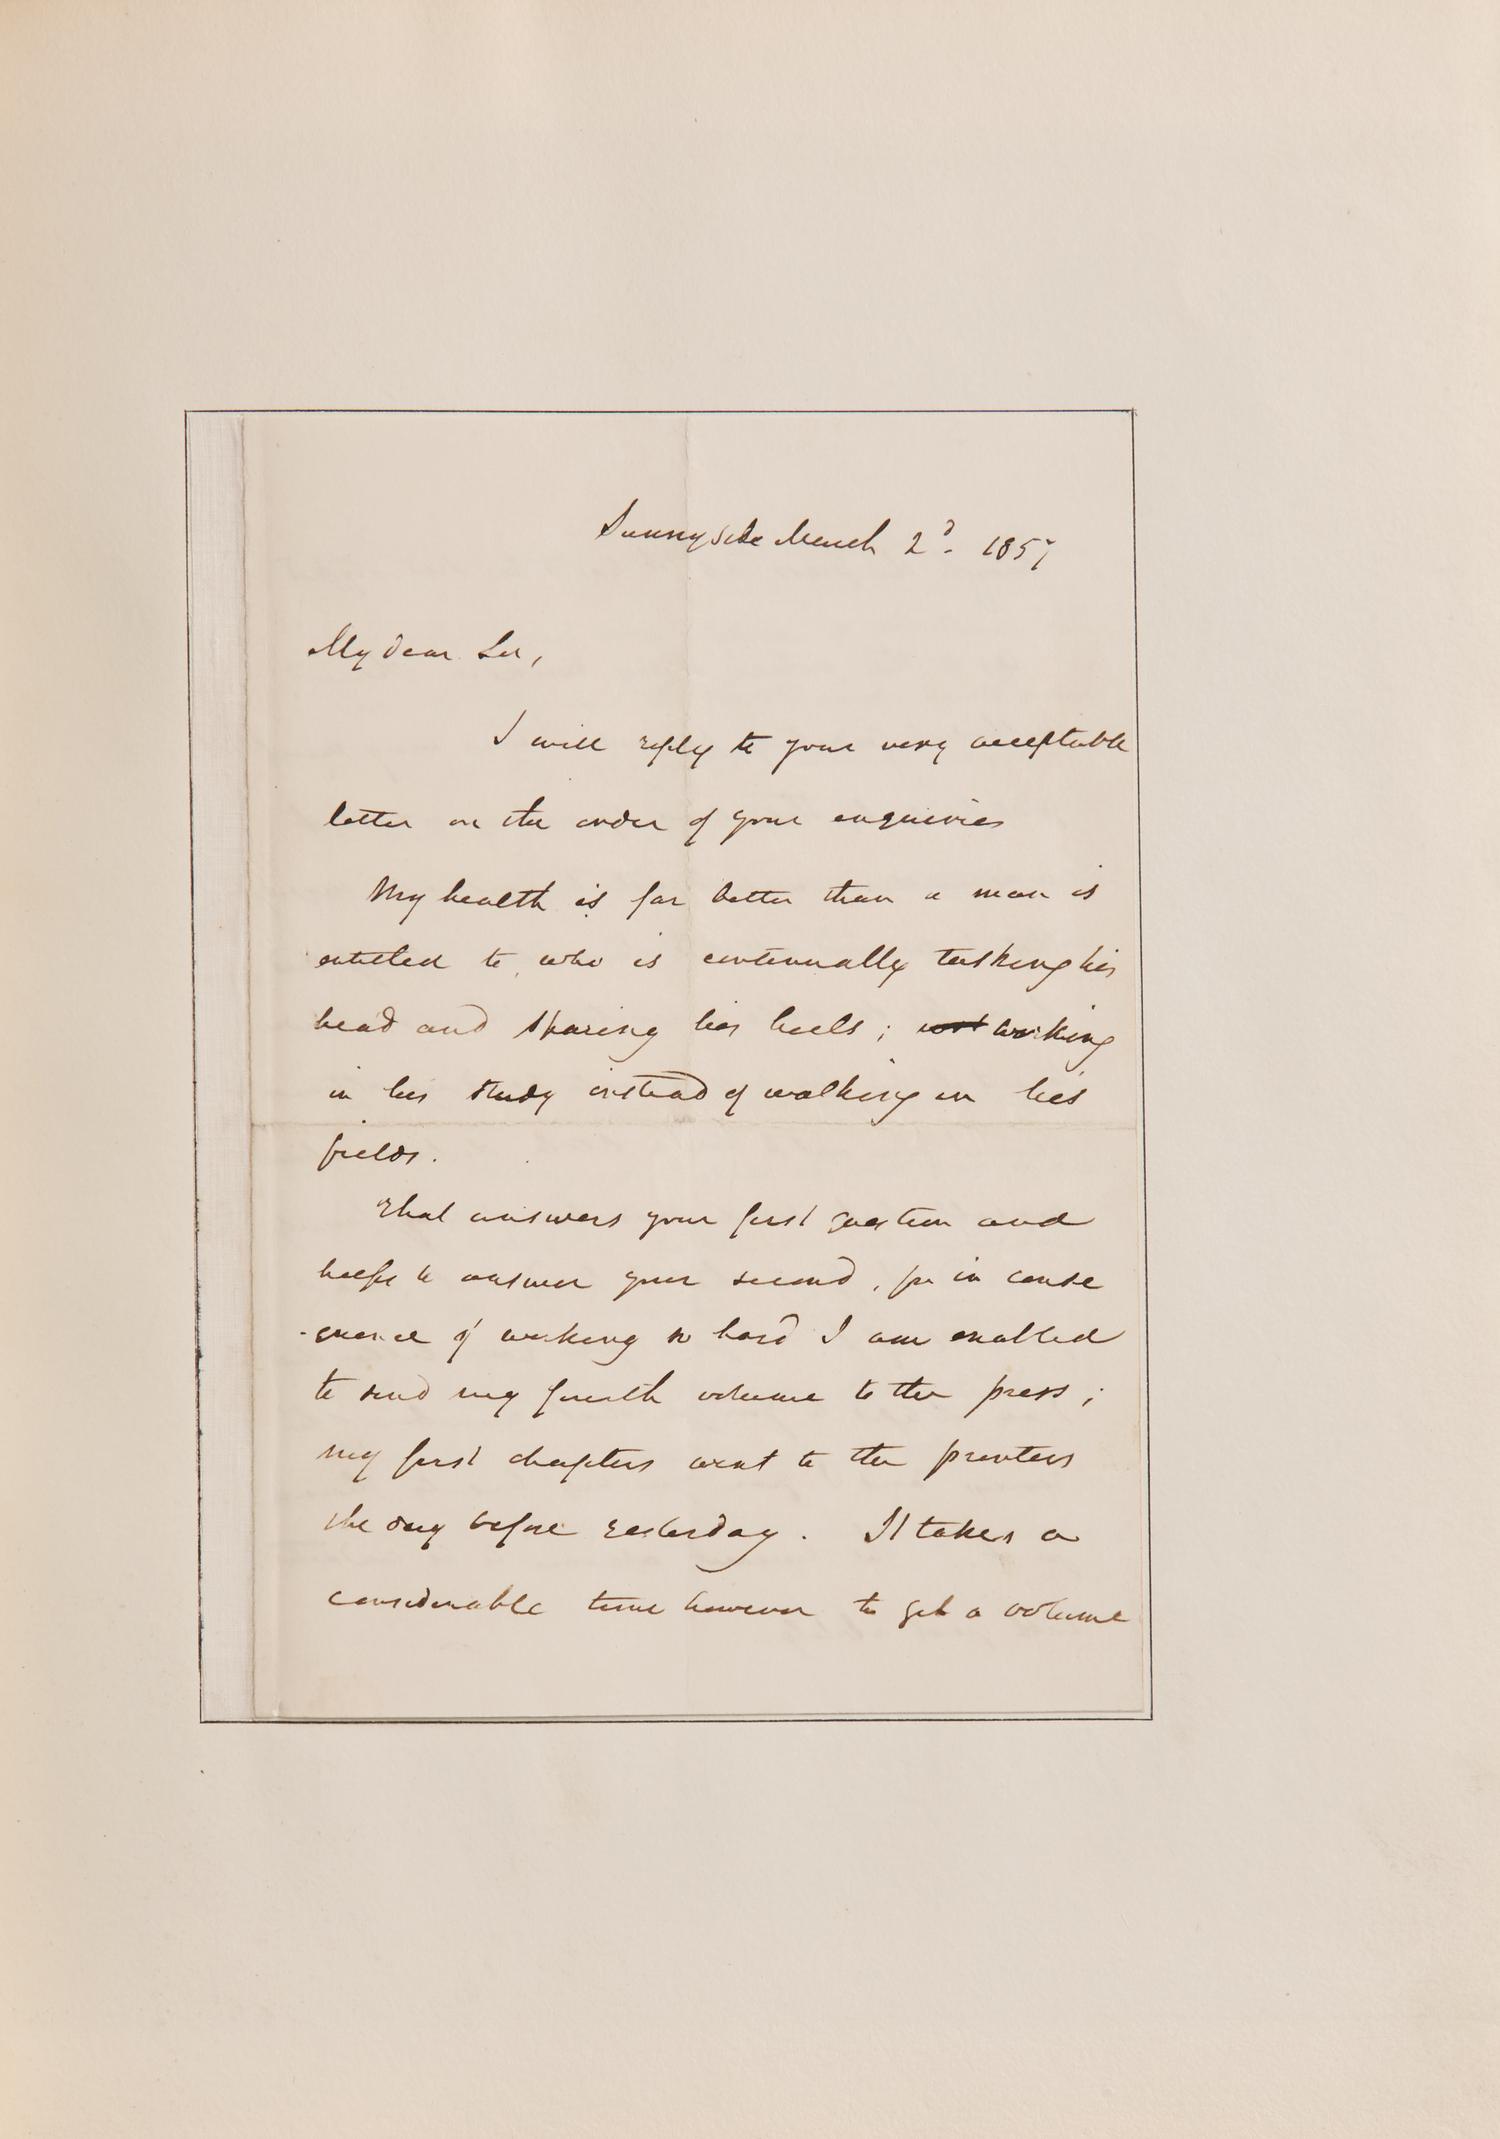 Sunnyside March 2d. 1857
My dear Sir,
I will reply to your very acceptable
letter in the order of your enquiries
My health is far better than a man is
entitled to who is continually tasking his
head and sparing his heels; working
in his study instead of walking in his
fields.
That answers your first question and
helps to answer your second, for in conse
-quence of working so hard I am enabled
to send my fourth volume to the press;
my first chapters went to the printers
the day before yesterday. It takes a
considerable time however to get a volume